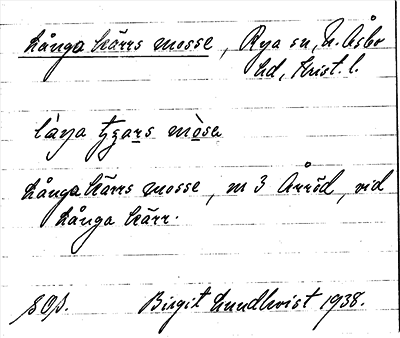 Långa kärrs mosse, Rya sn, N. Åsbo
hd, Krist. l.
Långa kärrs mosse, m 3 Årröd, vid
Långa kärr.
Birgit Lundkvist 1938.